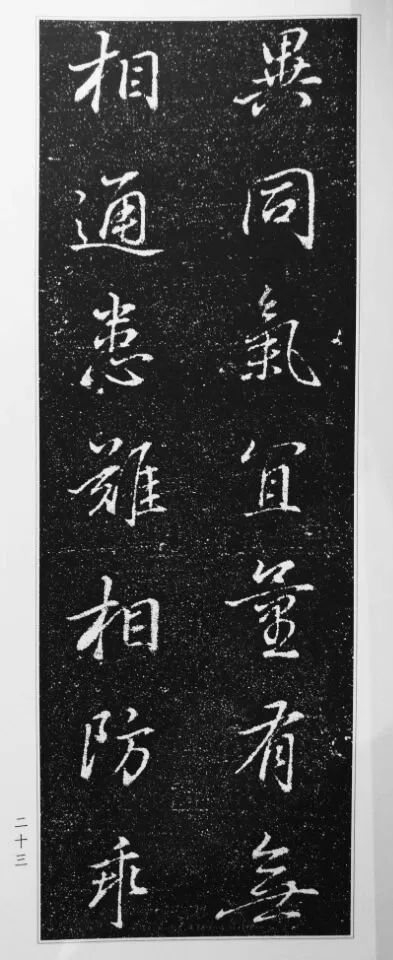 異同氣宜量有無
相通患難相防乖
二十三